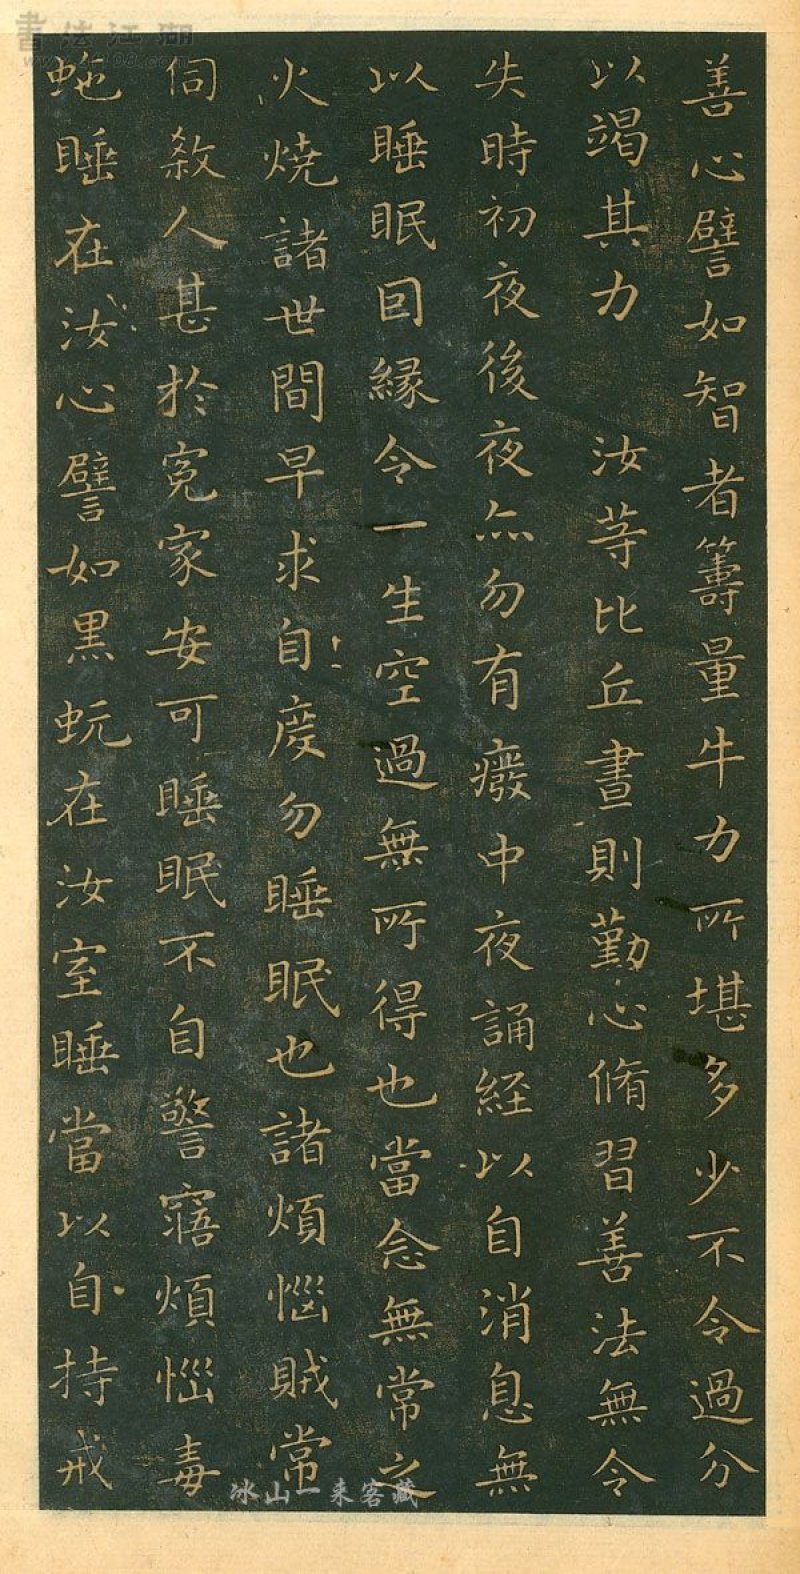 善心譬如智者籌量牛力所堪多少不令過分
以竭其力　汝等比丘晝則勤心脩習善法無令
失時初夜後夜亦勿有癈中夜誦経以自消息無
以睡眠因縁令一生空過無所得也當念無常之
火燒諸世間早求自度勿睡眠也諸煩惱賊常
伺煞人甚於冤家安可睡眠不自警寤煩惱毒
虵睡在汝心譬如黒蚖在汝室睡當以自持戒
書法江湖
冰山一来客藏